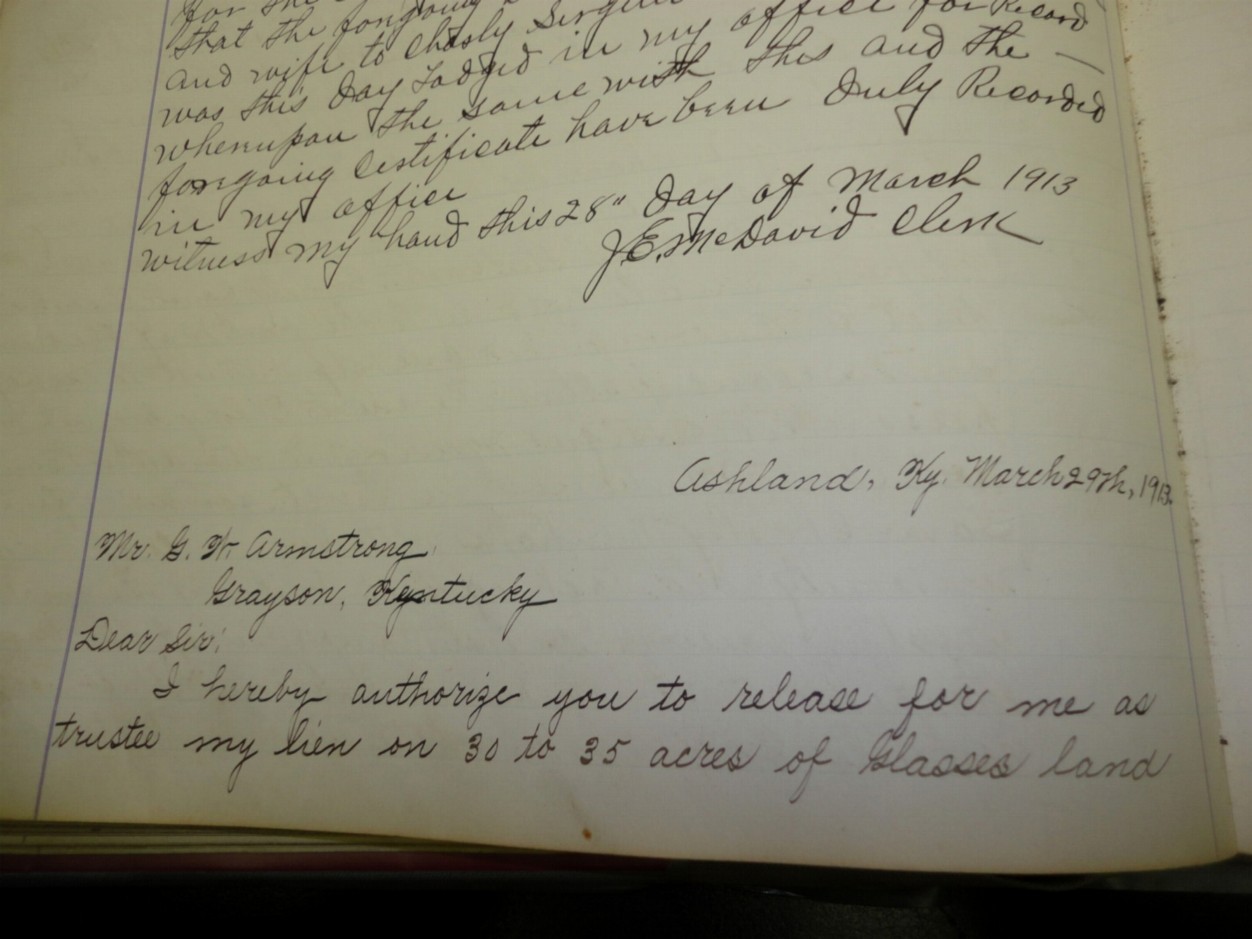 for the
that the forgoing
and wife to Chasly
was this day Lodged in my office for Record
whereupon the same with this and the —
forgoing Certificate have been Duly Recorded
in my office
witness my hand this 28" Day of March 1913
J.E. McDavid Clerk
Ashland, Ky. March 29th, 1913.
Mr. G. W. Armstrong
Grayson, Kentucky
Dear Sir:
I hereby authorize you to release for me as
trustee my lien on 30 to 35 acres of Glasses land